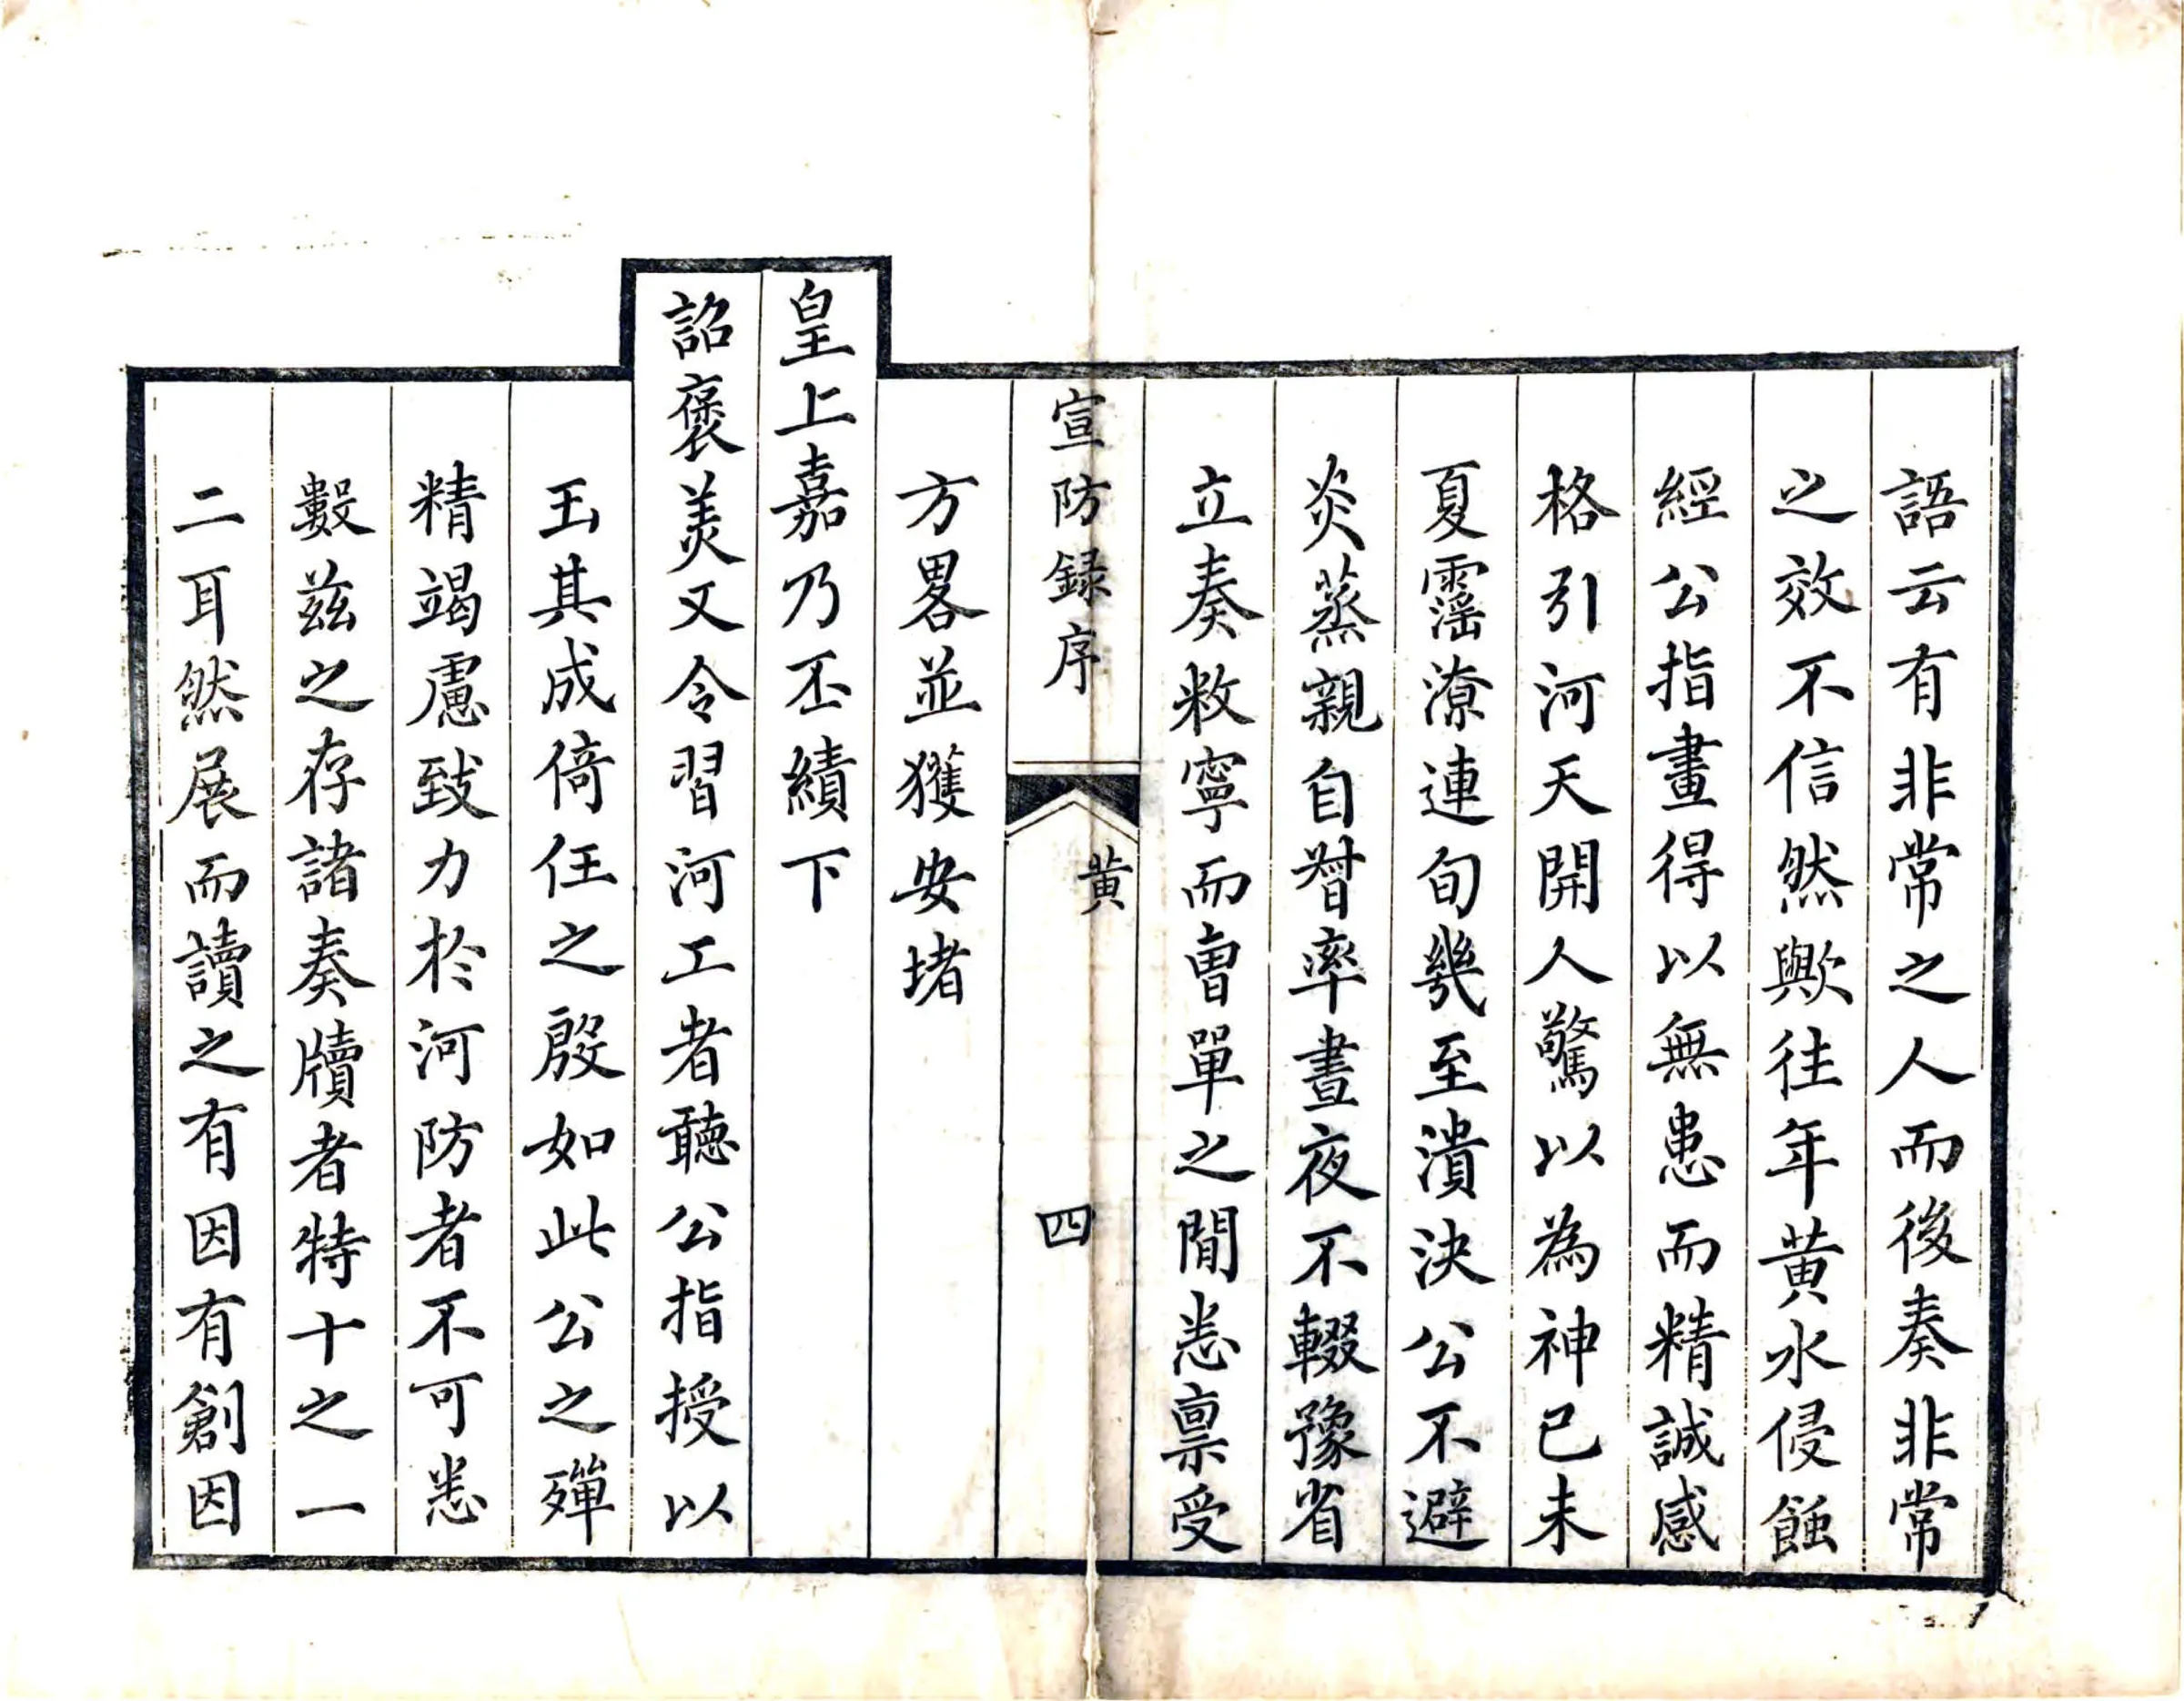 語云有非常之人而後奏非常
之效不信然歟往年黃水侵蝕
經公指畫得以無患而精誠感
格引河天開人驚以為神已未
夏霪潦連旬幾至潰決公不避
炎蒸親自督率晝夜不輟豫省
立奏敉寧而曹單之閒悉稟受
宣防録序
黃
四
方畧並獲安堵
皇上嘉乃丕績下
詔褒美又令習河工者聽公指授以
玉其成倚任之殷如此公之殫
精竭慮致力於河防者不可悉
數茲之存諸奏牘者特十之一
二耳然展而讀之有因有創因